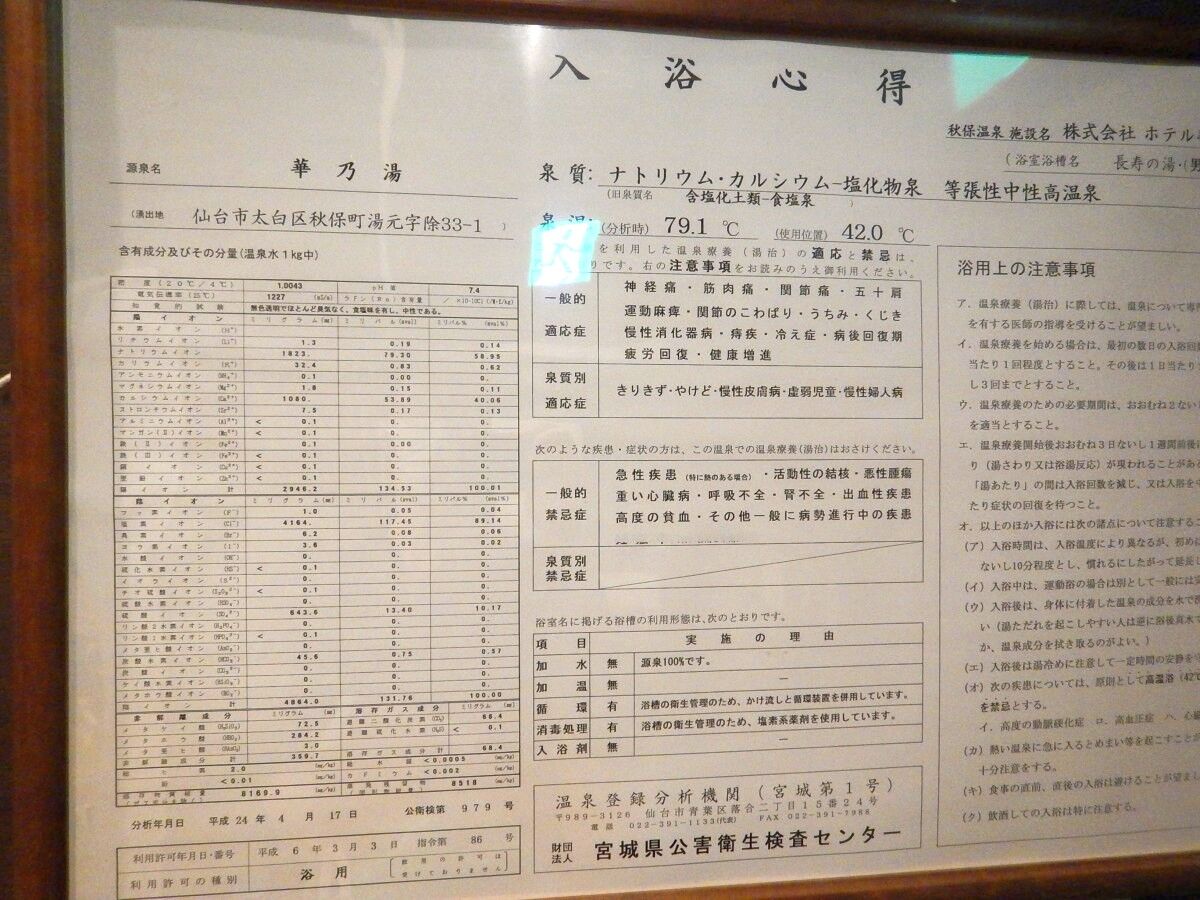 入浴心得
秋保温泉 施設名 株式会社 ホテル
(浴室浴槽名 長寿の湯・(男
源泉名 華乃湯
(湧出地 仙台市太白区秋保町湯元字除33-1 )
含有成分及びその分量(温泉水1kg中)
密度(20℃/4℃) 1.0043 pH値 7.4
電気伝導率(25℃) 1227 (mS/m) ラドン(Rn)含有量
知覚的試験 無色透明でほとんど臭気なく、食塩味を有し、中性である。
陽イオン ミリグラム(mg) ミリバル(mval) ミリバル% (mval%)
水素イオン (H⁺)
リチウムイオン (Li⁺) 1.3 0.19 0.14
ナトリウムイオン 1823. 79.30 58.95
カリウムイオン (K⁺) 32.4 0.83 0.62
アンモニウムイオン (NH₄⁺) 0.1 0.00 0.
マグネシウムイオン (Mg²⁺) 1.8 0.15 0.11
カルシウムイオン (Ca²⁺) 1080. 53.89 40.06
ストロンチウムイオン (Sr²⁺) 7.5 0.17 0.13
アルミニウムイオン (Al³⁺) < 0.1 0. 0.
マンガン(Ⅱ)イオン (Mn²⁺) < 0.1 0. 0.
鉄(Ⅱ)イオン (Fe²⁺) 0.1 0.00 0.
鉄(Ⅲ)イオン (Fe³⁺) < 0.1 0. 0.
銅イオン (Cu²⁺) < 0.1 0. 0.
亜鉛イオン (Zn²⁺) < 0.1 0. 0.
陽イオン計 2946.2 134.53 100.01
陰イオン ミリグラム(mg) ミリバル(mval) ミリバル% (mval%)
フッ素イオン (F⁻) 1.0 0.05 0.04
塩素イオン (Cl⁻) 4164. 117.45 89.14
臭素イオン (Br⁻) 6.2 0.08 0.06
ヨウ素イオン (I⁻) 3.6 0.03 0.02
水酸イオン (OH⁻) 0. 0. 0.
硫化水素イオン (HS⁻) < 0.1 0. 0.
イオウイオン (S²⁻) 0. 0. 0.
チオ硫酸イオン (S₂O₃²⁻) < 0.1 0. 0.
硫酸水素イオン (HSO₄⁻) 0. 0. 0.
硫酸イオン (SO₄²⁻) 643.6 13.40 10.17
リン酸2水素イオン (H₂PO₄⁻) 0. 0. 0.
リン酸1水素イオン (HPO₄²⁻) < 0.1 0. 0.
メタ亜ヒ酸イオン (AsO₂⁻) 0. 0. 0.
炭酸水素イオン (HCO₃⁻) 45.6 0.75 0.57
炭酸イオン (CO₃²⁻) 0. 0. 0.
ケイ酸水素イオン (HSiO₃⁻) 0. 0. 0.
メタホウ酸イオン (BO₂⁻) 0. 0. 0.
陰イオン計 4864.0 131.76 100.00
非解離成分 ミリグラム (mg) 溶存ガス成分 ミリグラム (mg)
メタケイ酸 (H₂SiO₃) 72.5 遊離二酸化炭素 (CO₂) 68.4
メタホウ酸 (HBO₂) 284.2 遊離硫化水素 (H₂S) < 0.1
メタ亜ヒ酸 (HAsO₂) 3.0
非解離成分計 359.7 溶存ガス成分計 68.4
総ヒ素 2.0 (mg/kg) 総水銀 <0.0005 (mg/kg)
<0.01 (mg/kg) カドミウム <0.002 (mg/kg)
8169.9 (mg/kg) 蒸発残留物 8518 (mg/kg)
分析年月日 平成24年4月17日 公衛検第979号
利用許可年月日・番号 平成6年3月3日 指令第86号
利用許可の種別 浴用 (飲用の許可は受けておりません)
泉質: ナトリウム・カルシウム−塩化物泉 等張性中性高温泉
(旧泉質名 含塩化土類−食塩泉 )
泉温: (分析時) 79.1 ℃ (使用位置) 42.0 ℃
を利用した温泉療養(湯治)の適応と禁忌は、
りです。右の注意事項をお読みのうえ御利用ください。
一般的適応症
神経痛・筋肉痛・関節痛・五十肩
運動麻痺・関節のこわばり・うちみ・くじき
慢性消化器病・痔疾・冷え症・病後回復期
疲労回復・健康増進
泉質別適応症
きりきず・やけど・慢性皮膚病・虚弱児童・慢性婦人病
次のような疾患・症状の方は、この温泉での温泉療養(湯治)はおさけください。
一般的禁忌症
急性疾患(特に熱のある場合)・活動性の結核・悪性腫瘍
重い心臓病・呼吸不全・腎不全・出血性疾患
高度の貧血・その他一般に病勢進行中の疾患
泉質別禁忌症
浴室名に掲げる浴槽の利用形態は、次のとおりです。
項目 実施の理由
加水 無 源泉100%です。
加温 無 −
循環 有 浴槽の衛生管理のため、かけ流しと循環装置を併用しています。
消毒処理 有 浴槽の衛生管理のため、塩素系薬剤を使用しています。
入浴剤 無 −
温泉登録分析機関(宮城第1号)
〒989-3126 仙台市青葉区落合二丁目15番24号
電話 022-391-1133(代表) FAX 022-391-7988
財団法人 宮城県公害衛生検査センター
浴用上の注意事項
ア. 温泉療養(湯治)に際しては、温泉について専
を有する医師の指導を受けることが望ましい。
イ. 温泉療養を始める場合は、最初の数日の入浴回
当たり1回程度とすること。その後は1日当たり
し3回までとすること。
ウ. 温泉療養のための必要期間は、おおむね2ない
を適当とすること。
エ. 温泉療養開始後おおむね3日ないし1週間前後
り(湯さわり又は浴湯反応)が現われることがあ
「湯あたり」の間は入浴回数を減じ、又は入浴を中
たり症状の回復を待つこと。
オ. 以上のほか入浴には次の諸点について注意するこ
(ア) 入浴時間は、入浴温度により異なるが、初めは
ないし10分程度とし、慣れるにしたがって延長し
(イ) 入浴中は、運動浴の場合は別として一般には
(ウ) 入浴後は、身体に付着した温泉の成分を水で
い(湯ただれを起こしやすい人は逆に浴後真水で
か、温泉成分を拭き取るのがよい。)
(エ) 入浴後は湯冷めに注意して一定時間の安静を
(オ) 次の疾患については、原則として高温浴(42℃
を禁忌とする。
イ. 高度の動脈硬化症 ロ. 高血圧症 ハ. 心臓
(カ) 熱い温泉に急に入るとめまい等を起こすことが
十分注意をする。
(キ) 食事の直前、直後の入浴は避けることが望まし
(ク) 飲酒しての入浴は特に注意する。